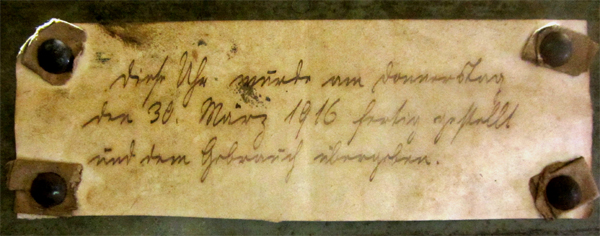 Diese Uhr wurde am Donnerstag
den 30. März 1916 fertig gestellt
und dem Gebrauch übergeben.